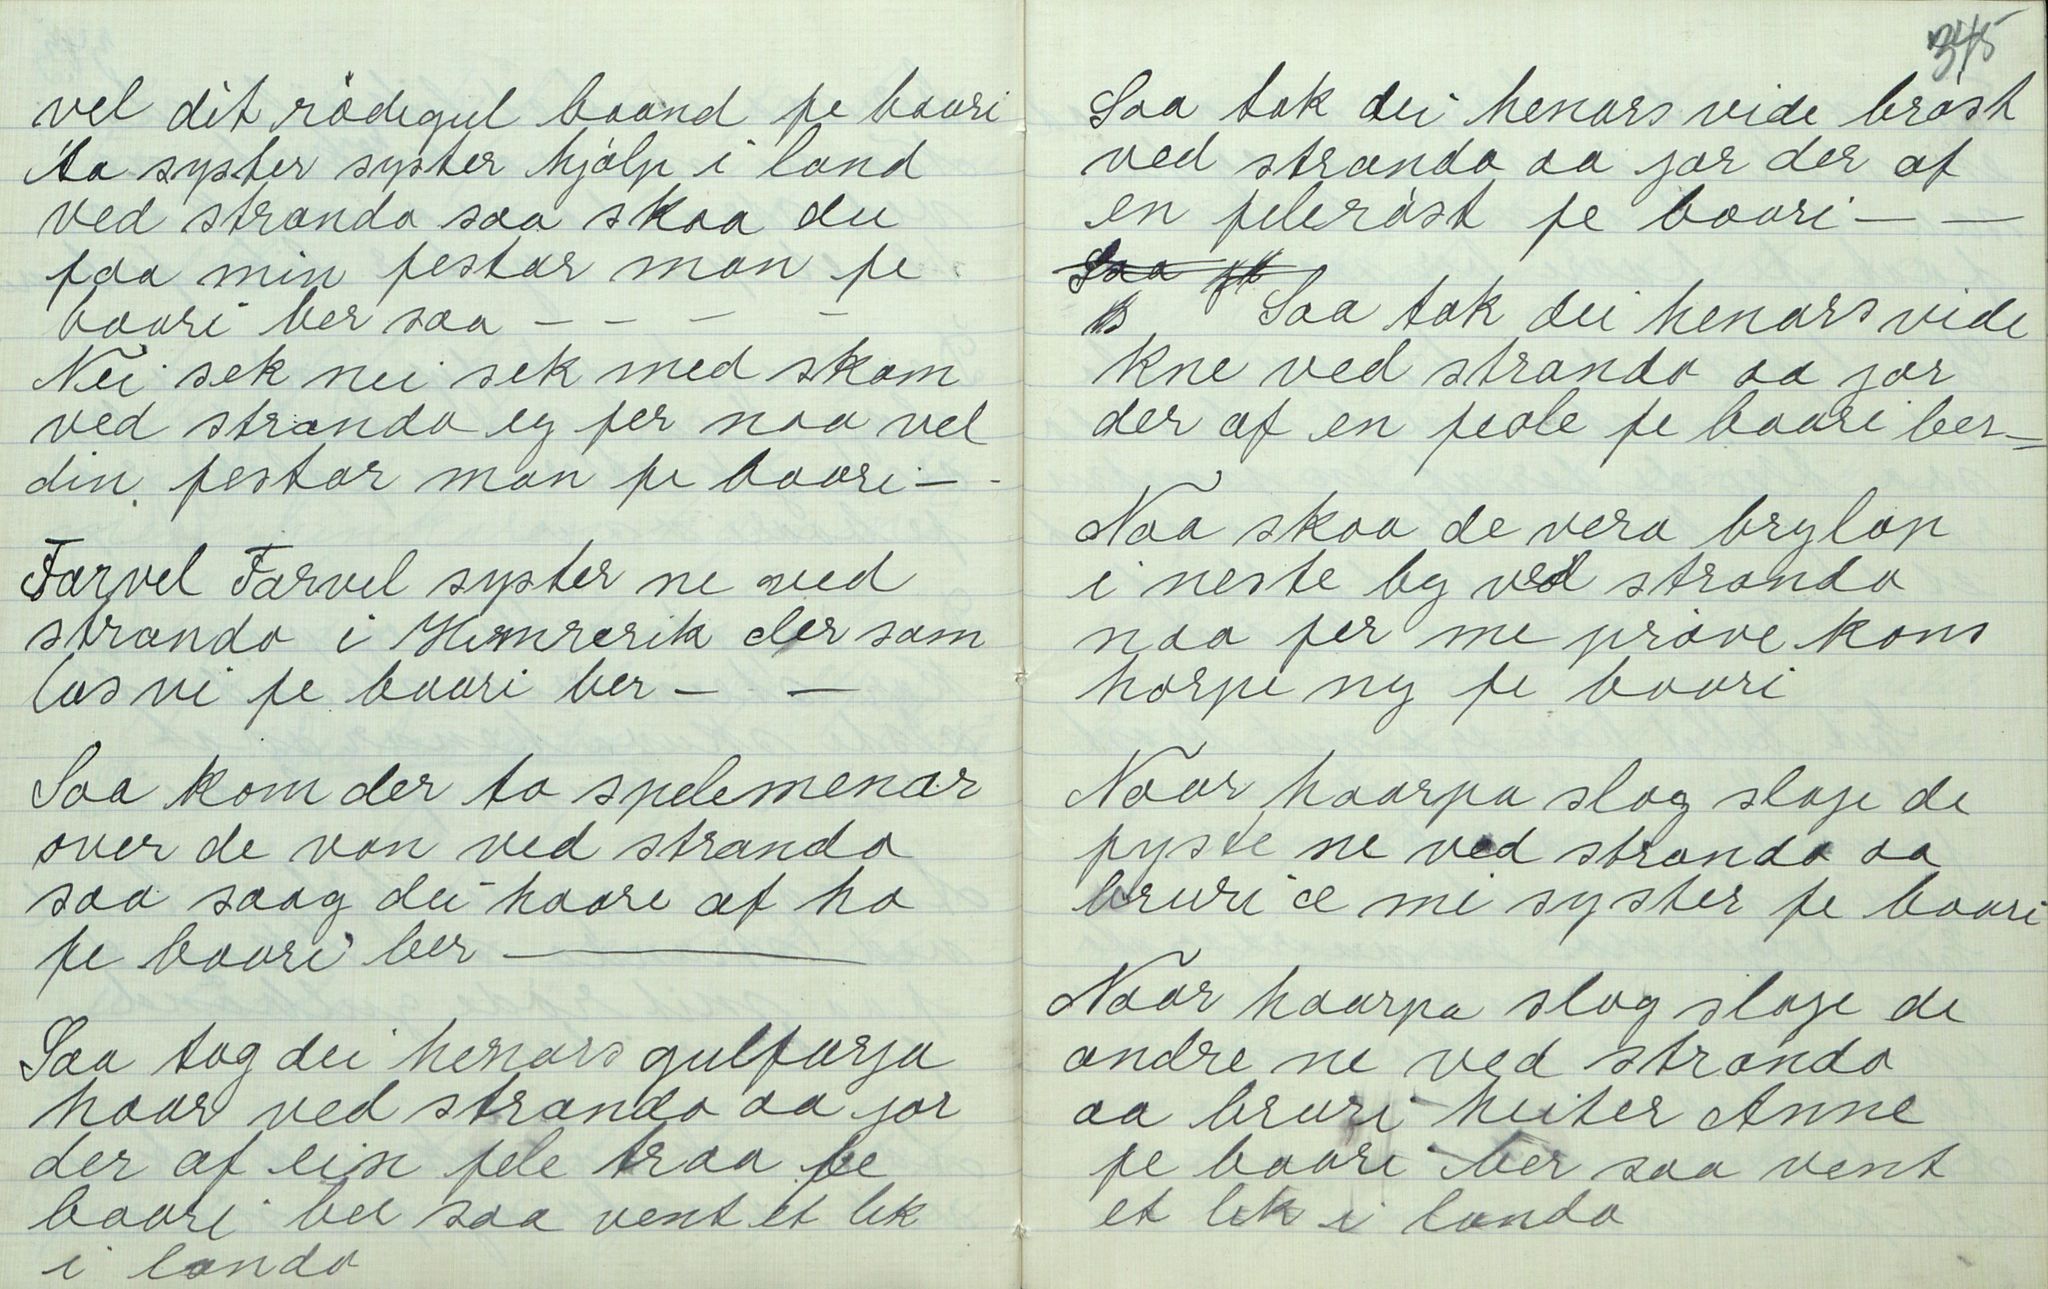 vel dit rödegul baand fe baari
ta syster syster hjölp i land
ved stranda saa skaa du
faa min festar man fe
baari ber saa — — — —
Nei sek nei sek med skam
ved stranda eg fer naa vel
din festar man fe baari — -
Farvel Farvel syster ne ved
stranda i Himrerik der sam
las vi fe baari ber — —
Saa kom der to spelemenar
over de van ved stranda
saa saag dei haare af ho
fe baari ber —
Saa tog dei henars gulfarja
haar ved stranda aa jor
der af ein fele traa fe
baari ber saa vent et lek
i landa
345
Saa tok dei henars vide bröst
ved stranda aa jor der af
en feleröst fe baari — —
Saa
Saa tok dei henars vide
kne ved stranda aa jor
der af en feole fe baari ber —
Naa skaa de vera brylop
i neste by ved stranda
naa fer me pröve kons
horpe ny fe baari
Naar haarpa slog slaje de
fyste ne ved stranda aa
bruri æ mi syster fe baari
Naar haarpa slog slaje de
andre ne ved stranda
aa bruri heiter Anne
fe baari ber saa vent
et lek i landa